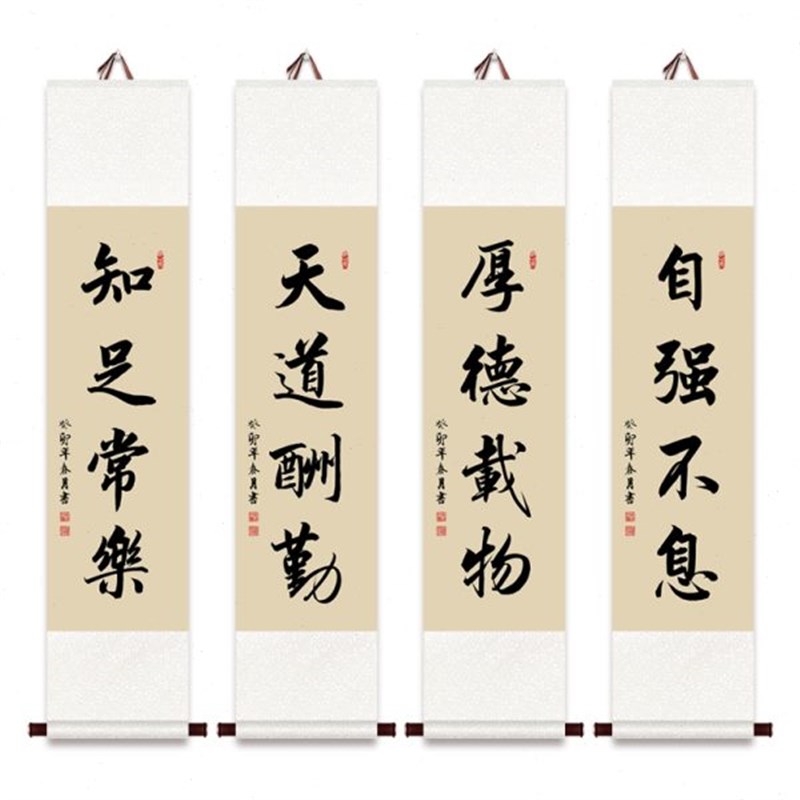 自强不息
癸卯年春月书
厚德載物
癸卯年春月书
天道酬勤
癸卯年春月书
知足常樂
癸卯年春月书